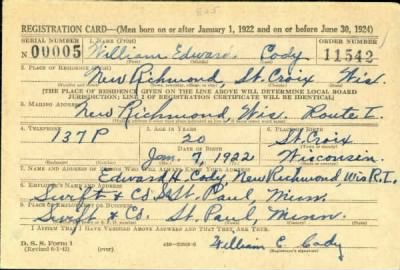 REGISTRATION CARD—(Men born on or after January 1, 1922 and on or before June 30, 1924)
SERIAL NUMBER 1. NAME (Print) ORDER NUMBER
N 00005 William Edward Cody 11542
2. PLACE OF RESIDENCE (Print)
New Richmond, St. Croix Wis.
[THE PLACE OF RESIDENCE GIVEN ON THE LINE ABOVE WILL DETERMINE LOCAL BOARD
JURISDICTION; LINE 2 OF REGISTRATION CERTIFICATE WILL BE IDENTICAL]
3. MAILING ADDRESS
New Richmond Wis. Route 1.
4. TELEPHONE 5. AGE IN YEARS 6. PLACE OF BIRTH
137P 20 St. Croix
DATE OF BIRTH
Jan. 7, 1922 Wisconsin
7. NAME AND ADDRESS OF PERSON WHO WILL ALWAYS KNOW YOUR ADDRESS
Edward H. Cody, New Richmond Wis R.1.
8. EMPLOYER'S NAME AND ADDRESS
Swift & Co. St. Paul, Minn.
9. PLACE OF EMPLOYMENT OR BUSINESS
Swift & Co. St. Paul, Minn.
I AFFIRM THAT I HAVE VERIFIED ABOVE ANSWERS AND THAT THEY ARE TRUE.
D. S. S. Form 1
(over) William E Cody